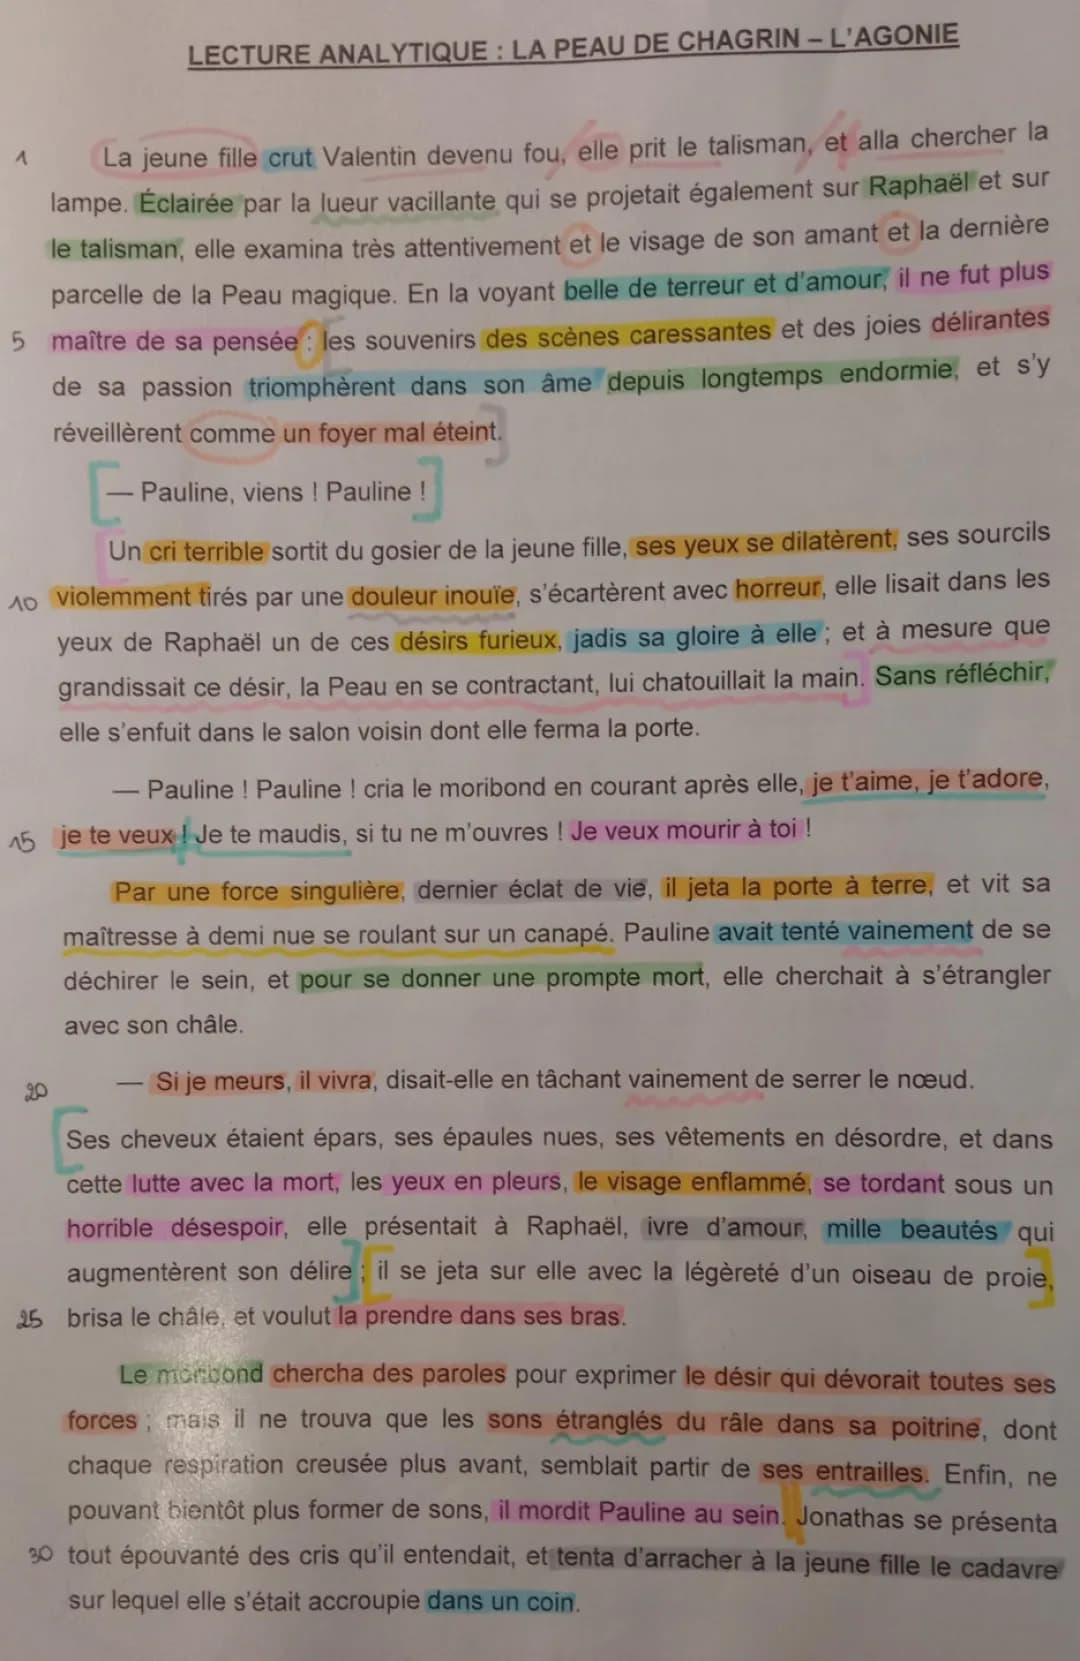 LECTURE ANALYTIQUE : LA PEAU DE CHAGRIN – L'AGONIE
1 La jeune fille crut Valentin devenu fou, elle prit le talisman, et alla chercher la
lampe. Éclairée par la lueur vacillante qui se projetait également sur Raphaël et sur
le talisman, elle examina très attentivement et le visage de son amant et la dernière
parcelle de la Peau magique. En la voyant belle de terreur et d'amour, il ne fut plus
5 maître de sa pensée : les souvenirs des scènes caressantes et des joies délirantes
de sa passion triomphèrent dans son âme depuis longtemps endormie, et s'y
réveillèrent comme un foyer mal éteint.
— Pauline, viens ! Pauline !
Un cri terrible sortit du gosier de la jeune fille, ses yeux se dilatèrent, ses sourcils
10 violemment tirés par une douleur inouïe, s'écartèrent avec horreur, elle lisait dans les
yeux de Raphaël un de ces désirs furieux, jadis sa gloire à elle ; et à mesure que
grandissait ce désir, la Peau en se contractant, lui chatouillait la main. Sans réfléchir,
elle s'enfuit dans le salon voisin dont elle ferma la porte.
— Pauline ! Pauline ! cria le moribond en courant après elle, je t'aime, je t'adore,
15 je te veux ! Je te maudis, si tu ne m'ouvres ! Je veux mourir à toi !
Par une force singulière, dernier éclat de vie, il jeta la porte à terre, et vit sa
maîtresse à demi nue se roulant sur un canapé. Pauline avait tenté vainement de se
déchirer le sein, et pour se donner une prompte mort, elle cherchait à s'étrangler
avec son châle.
20 — Si je meurs, il vivra, disait-elle en tâchant vainement de serrer le nœud.
Ses cheveux étaient épars, ses épaules nues, ses vêtements en désordre, et dans
cette lutte avec la mort, les yeux en pleurs, le visage enflammé, se tordant sous un
horrible désespoir, elle présentait à Raphaël, ivre d'amour, mille beautés qui
augmentèrent son délire ; il se jeta sur elle avec la légèreté d'un oiseau de proie,
25 brisa le châle, et voulut la prendre dans ses bras.
Le moribond chercha des paroles pour exprimer le désir qui dévorait toutes ses
forces ; mais il ne trouva que les sons étranglés du râle dans sa poitrine, dont
chaque respiration creusée plus avant, semblait partir de ses entrailles. Enfin, ne
pouvant bientôt plus former de sons, il mordit Pauline au sein. Jonathas se présenta
30 tout épouvanté des cris qu'il entendait, et tenta d'arracher à la jeune fille le cadavre
sur lequel elle s'était accroupie dans un coin.